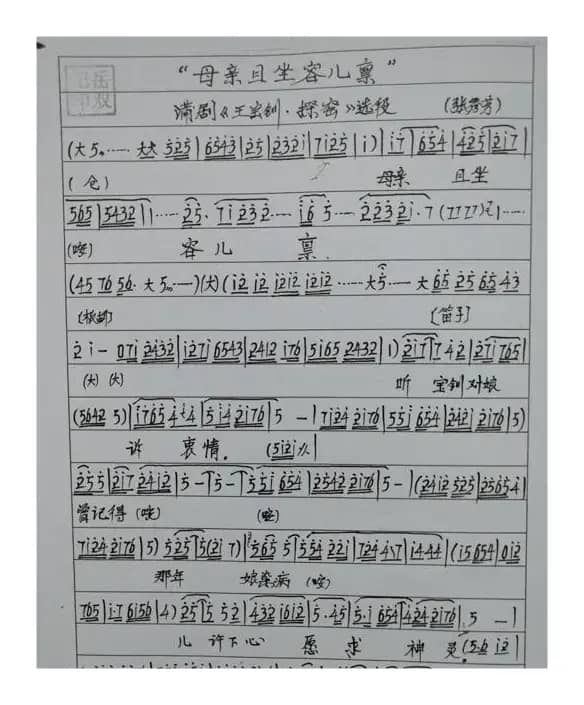 "母亲且坐容儿禀"
蒲剧《王宝钏·探窑》选段 (张秀芳)
(大5…… 大大 525 | 6543 | 25 | 2321 | 7125 | 1) | 17 | 654 | 425 | 217 |
(仓) 母亲 且坐
565 | 5432 | 1…… 25. 7 1 232…… 16 5…… 22321. 7 (7777)
(唉) 容儿 禀
(45 76 56. 大5……)(大)(12 12 1212 1212 ……大5…… 大 65 25 65 43
[笛子]
2 1 — 071 2432 | 1271 6543 | 2412 176 | 5165 2432 | 1) 217 7 42 | 271765 |
(大)(大) 听 宝钏对娘
(5642 5) | 51421 76 | 5 — | 7124 2176 | 551 654 | 2421 2176 | 5)
诉 衷情.
255 | 217 2412 | 5 — | 5 — | 551 654 | 2542 2176 | 5 — | (2412 525 | 25654
曾记得 (唉) (唉)
7124 2176 | 5) 525 | 5(21 7) | 565 5 | 554 221 | 1444 | (15654 | 012
那年 娘染病 (唉)
765 | 1.7 6156 | 4) 25 | 5 52 | 432 1612 | 5.45 | 5.1 654 | 424 2176 | 5 — |
儿 许下心 愿 求 神 灵.